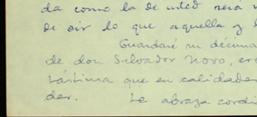 da como la de usted será m
de oir lo que aquella y l
Guardaré su décima
de don Salvador Novo, ere
Lástima que en calidades
der. Le abraza cordi